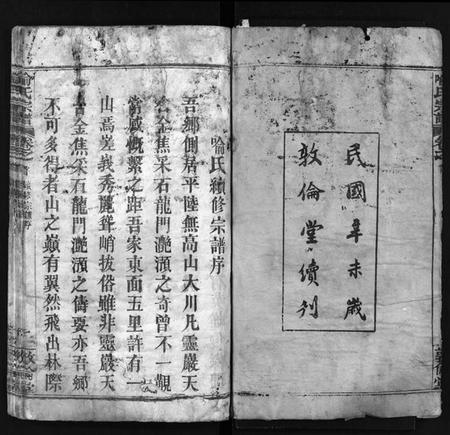 民國辛未歲
敦倫堂續刊
喻氏續修宗譜序
吾鄉側居平陸無高山大川凡靈巖天
金焦采石龍門灔澦之奇曾不一覩
當感慨繫之距吾家東面五里許有一
山焉差峩秀麗聳峭拔俗雖非靈巖天
金焦采石龍門灔澦之儔要亦吾鄉
不可多得者山之巔有翼然飛出林際